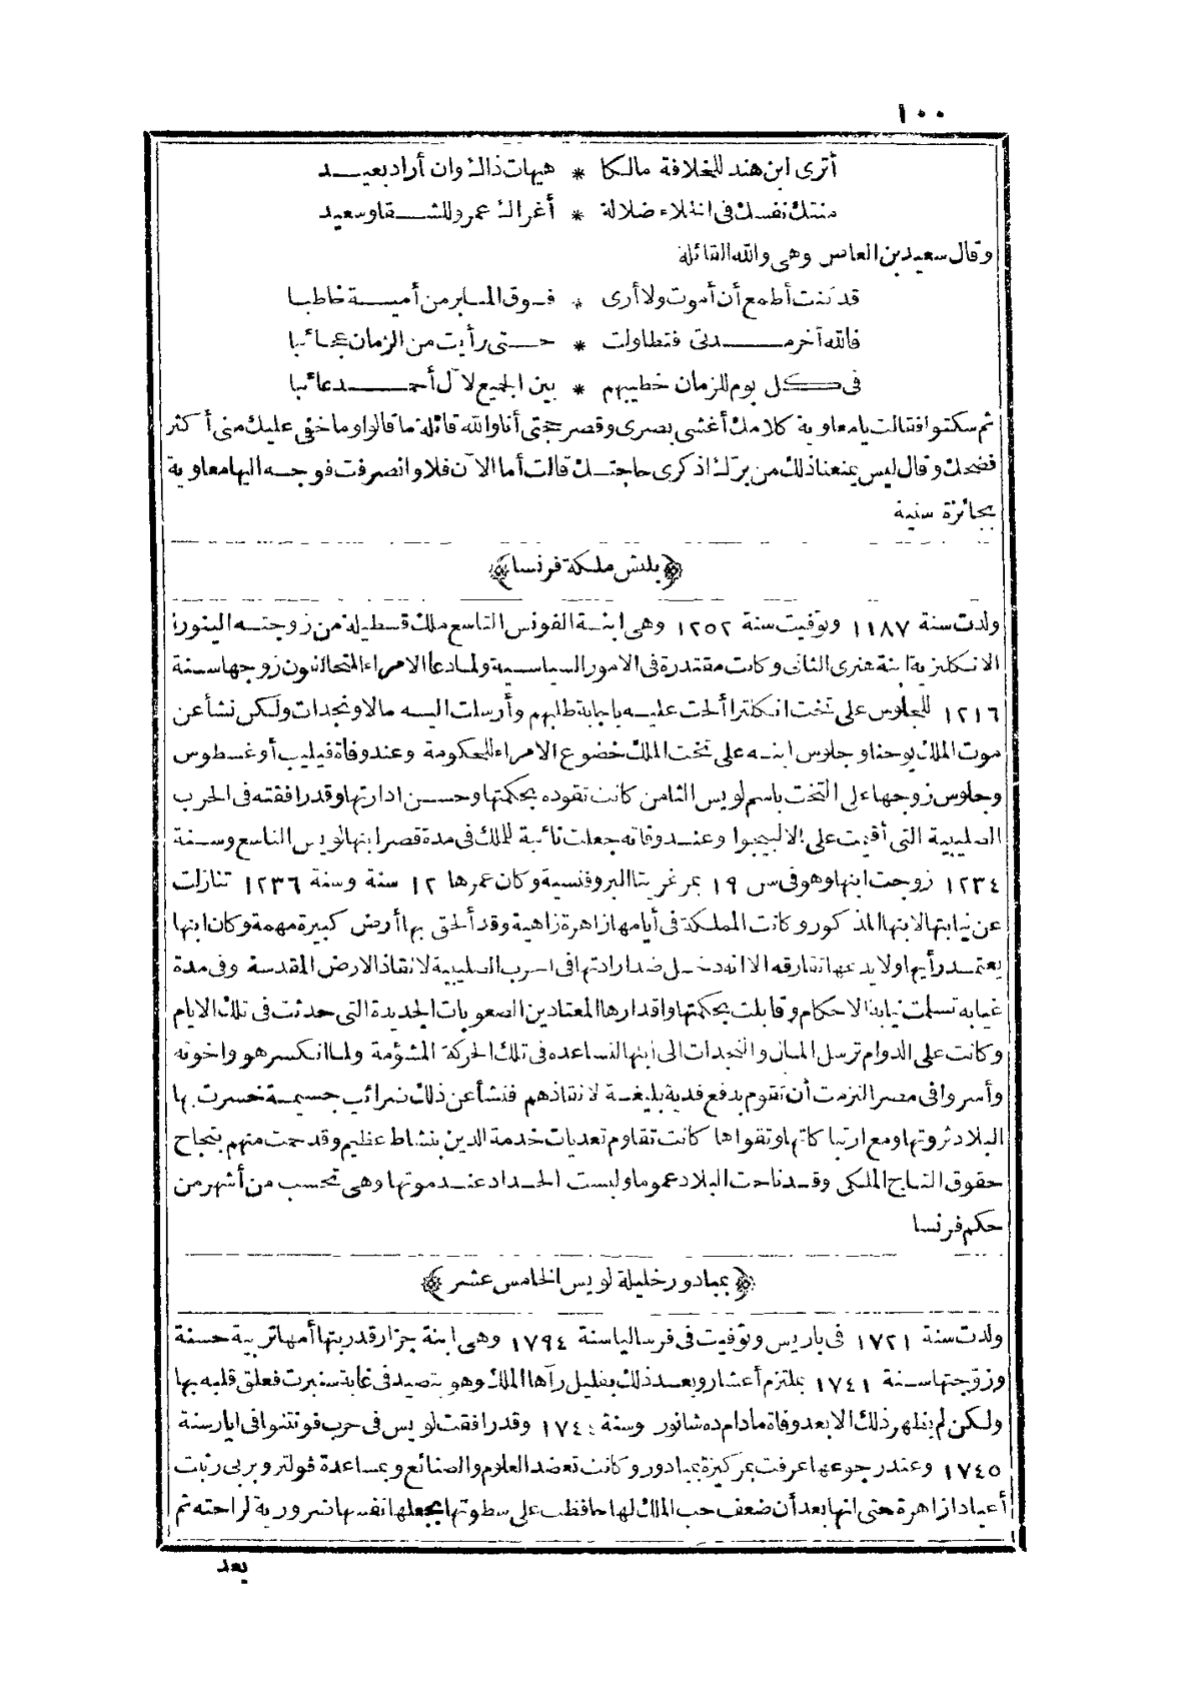 ١٠٠
أترى ابن هند للخلافة مالكا * هيهات ذاك وان أراد بعيــد
منتك نفسك فى الخلاء ضلالة * أغراك عمرو للشــقا وسعيد
وقال سعيد بن العاص وهى والله القائلة
قد كنت أطمع أن أموت ولا أرى * فــوق المنابر من أميــة خاطبا
فالله أخر مــدتى فتطاولت * حــتى رأيت من الزمان عجــائبا
فى كل يوم للزمان خطيبهم * بين الجميع لآل أحمــد عائبا
ثم سكتوا فقالت يا معاوية كلامك أغشى بصرى وقصر حجتى أنا والله قائلة ما قالوا وما خفى عليك منى أكثر
فضحك وقال ليس يمنعنا ذلك من برّك اذكرى حاجتــك قالت أما الآن فلا وانصرفت فوجــه اليها معاوية
بجائزة سنية
﴿بلنش ملكة فرنسا﴾
ولدت سنة ١١٨٧ وتوفيت سنة ١٢٥٢ وهى ابنــة الفونس التاسع ملك قسطيلة من زوجتــه الينورا
الانكليزية ابنة هنرى الثانى وكانت مقتدرة فى الامور السياسية ولما دعا الامراء المتحالفون زوجها سنة
١٢١٦ للجلوس على تخت انكلترا ألحت عليــه باجابة طلبهم وأرسلت اليــه مالا ونجدات ولكن نشأ عن
موت الملك يوحنا وجلوس ابنــه على تخت الملك خضوع الامراء للحكومة وعند وفاة فيليب أوغسطوس
وجلوس زوجها على التخت باسم لويس الثامن كانت تقوده بحكمتها وحســن ادارتها وقد رافقته فى الحرب
الصليبية التى أقيمت على الالبيجوا وعنــد وفاته جعلت نائبة للملك فى مدة قصر ابنها لويس التاسع وســنة
١٢٣٤ زوجت ابنها وهو فى سن ١٩ بمرغريتا البروفنسية وكان عمرها ١٢ سنة وسنة ١٢٣٦ تنازلت
عن نيابتها لابنها المذكور وكانت المملكة فى أيامها زاهرة زاهية وقد ألحق بها أرض كبيرة مهمة وكان ابنها
يعتمــد رأيها ولا يدعها تفارقه الا انه دخــل ضد ارادتها فى الحرب الصليبية لانقاذ الارض المقدسة وفى مدة
غيابه تسلمت نيابة الاحكام وقابلت بحكمتها واقدارها المعتادين الصعوبات الجديدة التى حدثت فى تلك الايام
وكانت على الدوام ترسل المال والنجدات الى ابنها لتساعده فى تلك الحركة المشؤمة ولما انكسر هو واخوته
وأسروا فى مصر التزمت أن تقوم بدفع فدية بليغــة لانقاذهم فنشأ عن ذلك ضرائب جسيمــة خسرت بها
البلاد ثروتها ومع ارتباكاتها وتقواها كانت تقاوم تعديات خدمة الدين بنشاط عظيم وقد حمت منهم بنجاح
حقوق التــاج الملكى وقــد ناحت البلاد عموما ولبست الحــداد عنــد موتها وهى تحسب من أشهر من
حكم فرنسا
﴿بمبادور خليلة لويس الخامس عشر﴾
ولدت سنة ١٧٢١ فى باريس وتوفيت فى فرساليا سنة ١٧٩٤ وهى ابنة جزار قد ربتها أمها تربية حسنة
وزوّجتها ســنة ١٧٤١ بملتزم أعشار وبعــد ذلك بقليل رآها الملك وهو يتصيد فى غابة سنبرت فعلق قلبه بها
ولكن لم يظهر ذلك الا بعد وفاة مادام ده شانور وسنة ١٧٤٠ وقد رافقت لويس فى حرب فونتنوا فى ايار سنة
١٧٤٥ وعند رجوعها عرفت بمركيزة بمبادور وكانت تعضد العلوم والصنائع وبمساعدة ڤولتر وبربى رتبت
أعيادا زاهرة حتى انها بعد أن ضعف حب الملك لها حافظت على سطوتها بجعلها نفسها ضرورية لراحته ثم
بعد